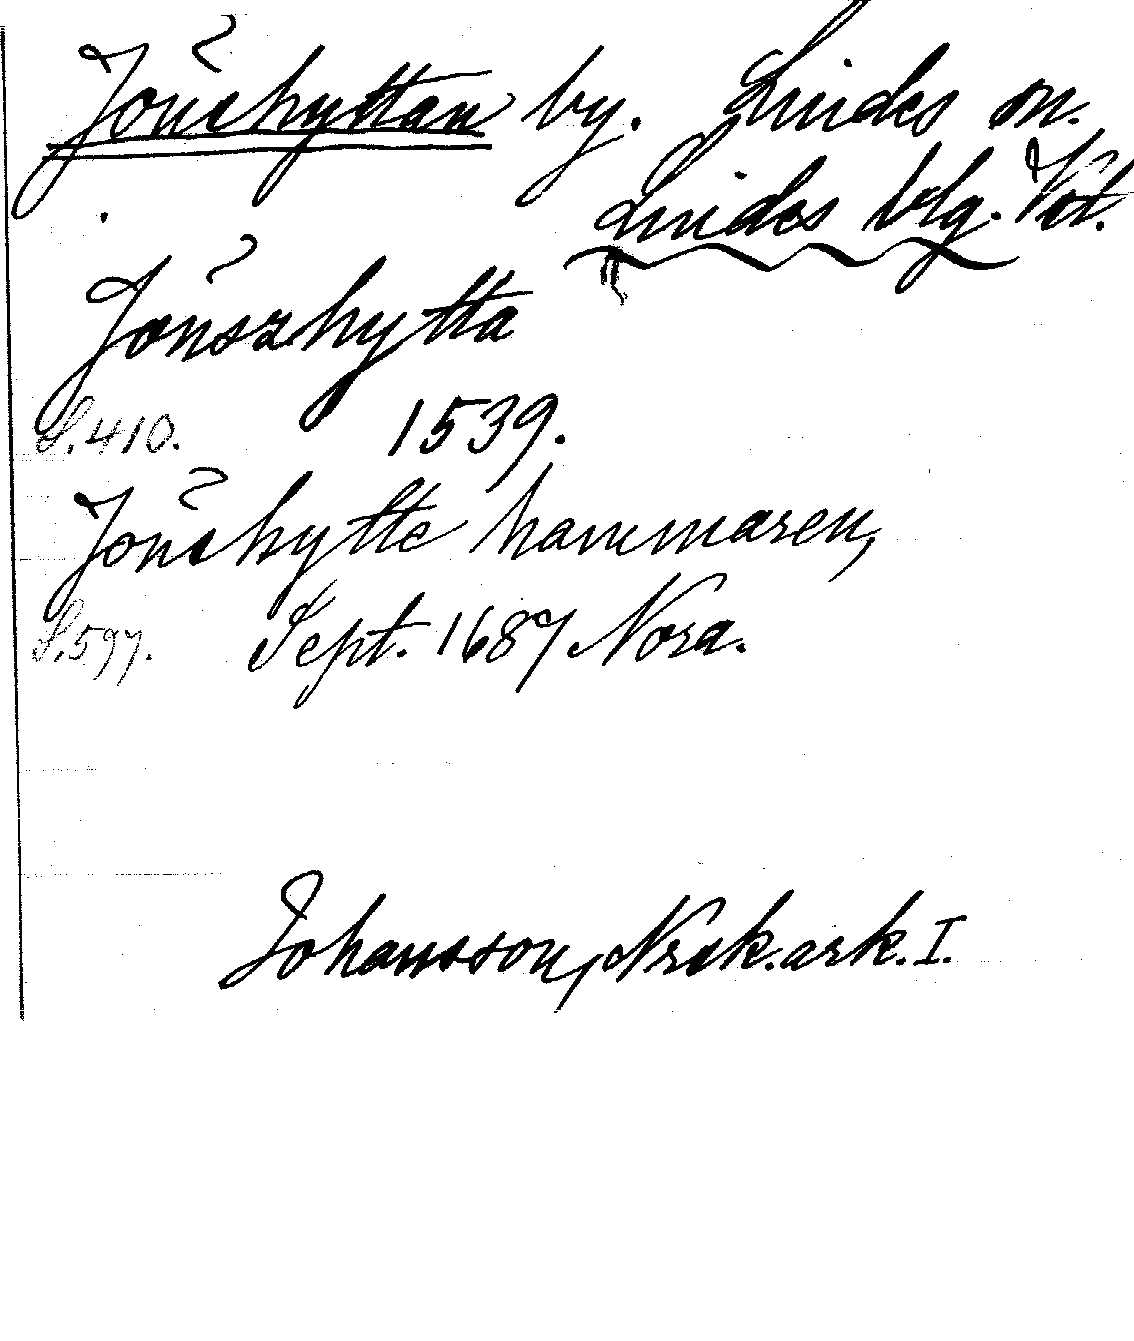 Jönshyttan by. Lindes sn.
Lindes blg. Vst.
Jönszhytta
S. 410. 1539.
Jönshytte hammaren,
S. 597. Sept. 1687 Nora.
Johansson, Nrsk. ark. I.